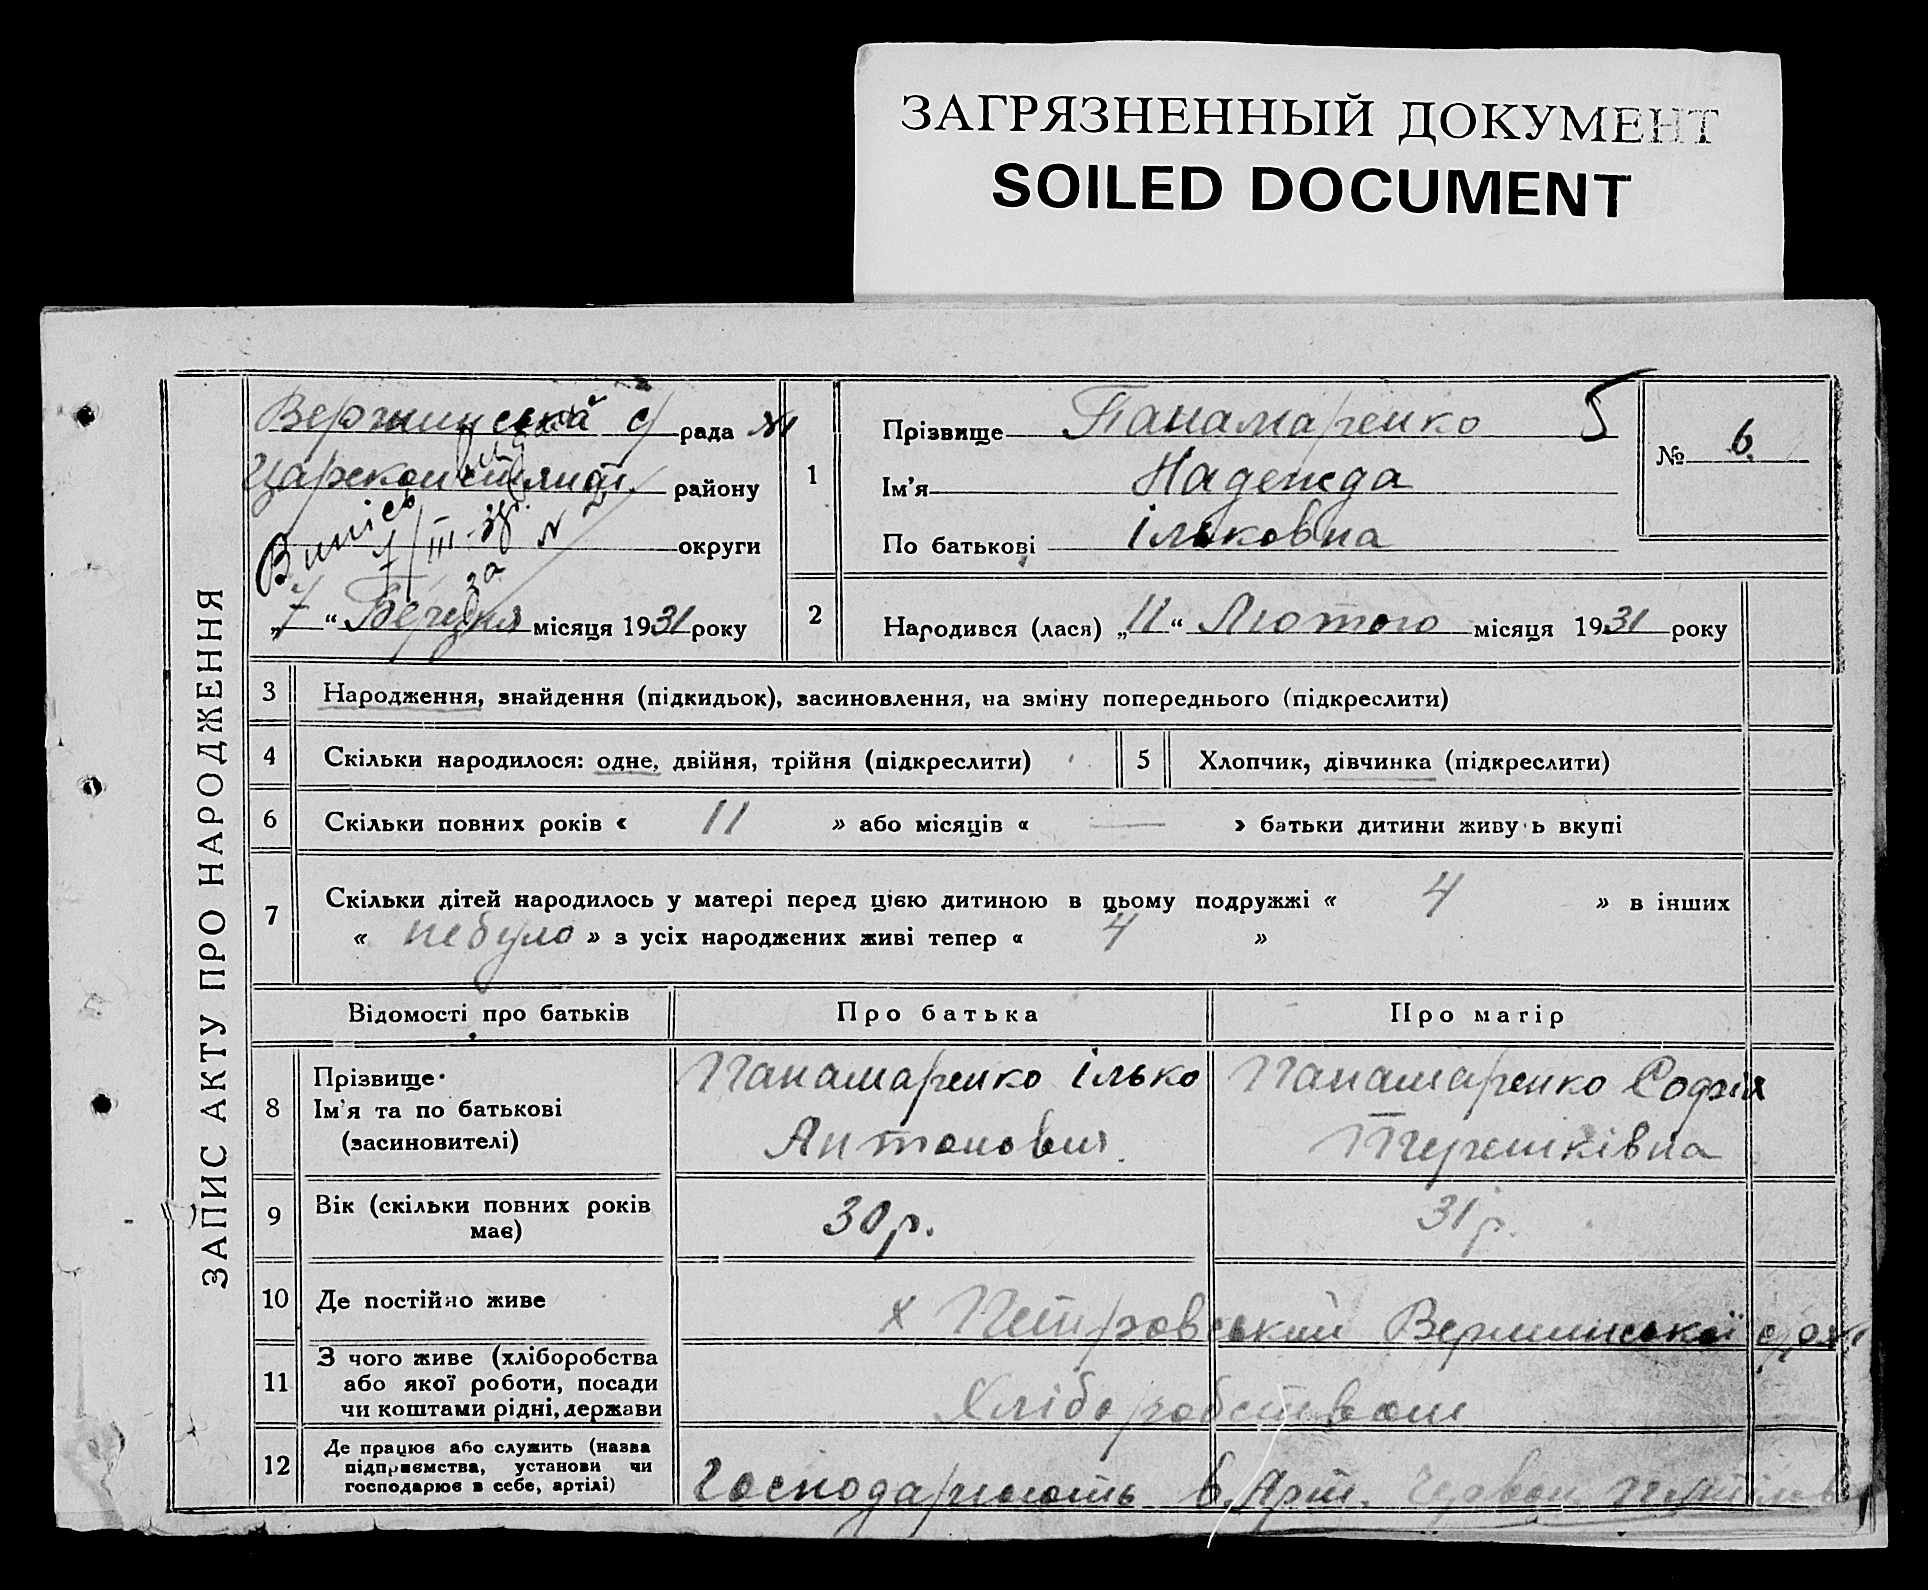 ЗАГРЯЗНЕННЫЙ ДОКУМЕНТ
SOILED DOCUMENT
ЗАПИС АКТУ ПРО НАРОДЖЕННЯ
рада
району
округи
„7“ Березня місяця 1931 року
1 Прізвище Панамаренко 5
Ім'я Надежда
По батькові Ільковна
№ 6.
2 Народився (лася) „11“ Лютого місяця 1931 року
3 Народження, знайдення (підкидьок), засиновлення, на зміну попереднього (підкреслити)
4 Скільки народилося: одне, двійня, трійня (підкреслити) 5 Хлопчик, дівчинка (підкреслити)
6 Скільки повних років « 11 » або місяців « — » батьки дитини живуть вкупі
7 Скільки дітей народилось у матері перед цією дитиною в цьому подружжі « 4 » в інших
« небуло » з усіх народжених живі тепер « 4 »
Відомості про батьків Про батька Про матір
8 Прізвище Панамаренко Ілько Панамаренко Софія
Ім'я та по батькові
(засиновителі) Антонович Терешківна
9 Вік (скільки повних років
має) 30 р. 31 р.
10 Де постійно живе х Петровський
11 З чого живе (хліборобства
або якої роботи, посади
чи коштами рідні, держави Хліборобством
12 Де працює або служить (назва
підприємства, установи чи
господарює в себе, артілі) Господарюють в. Арт.